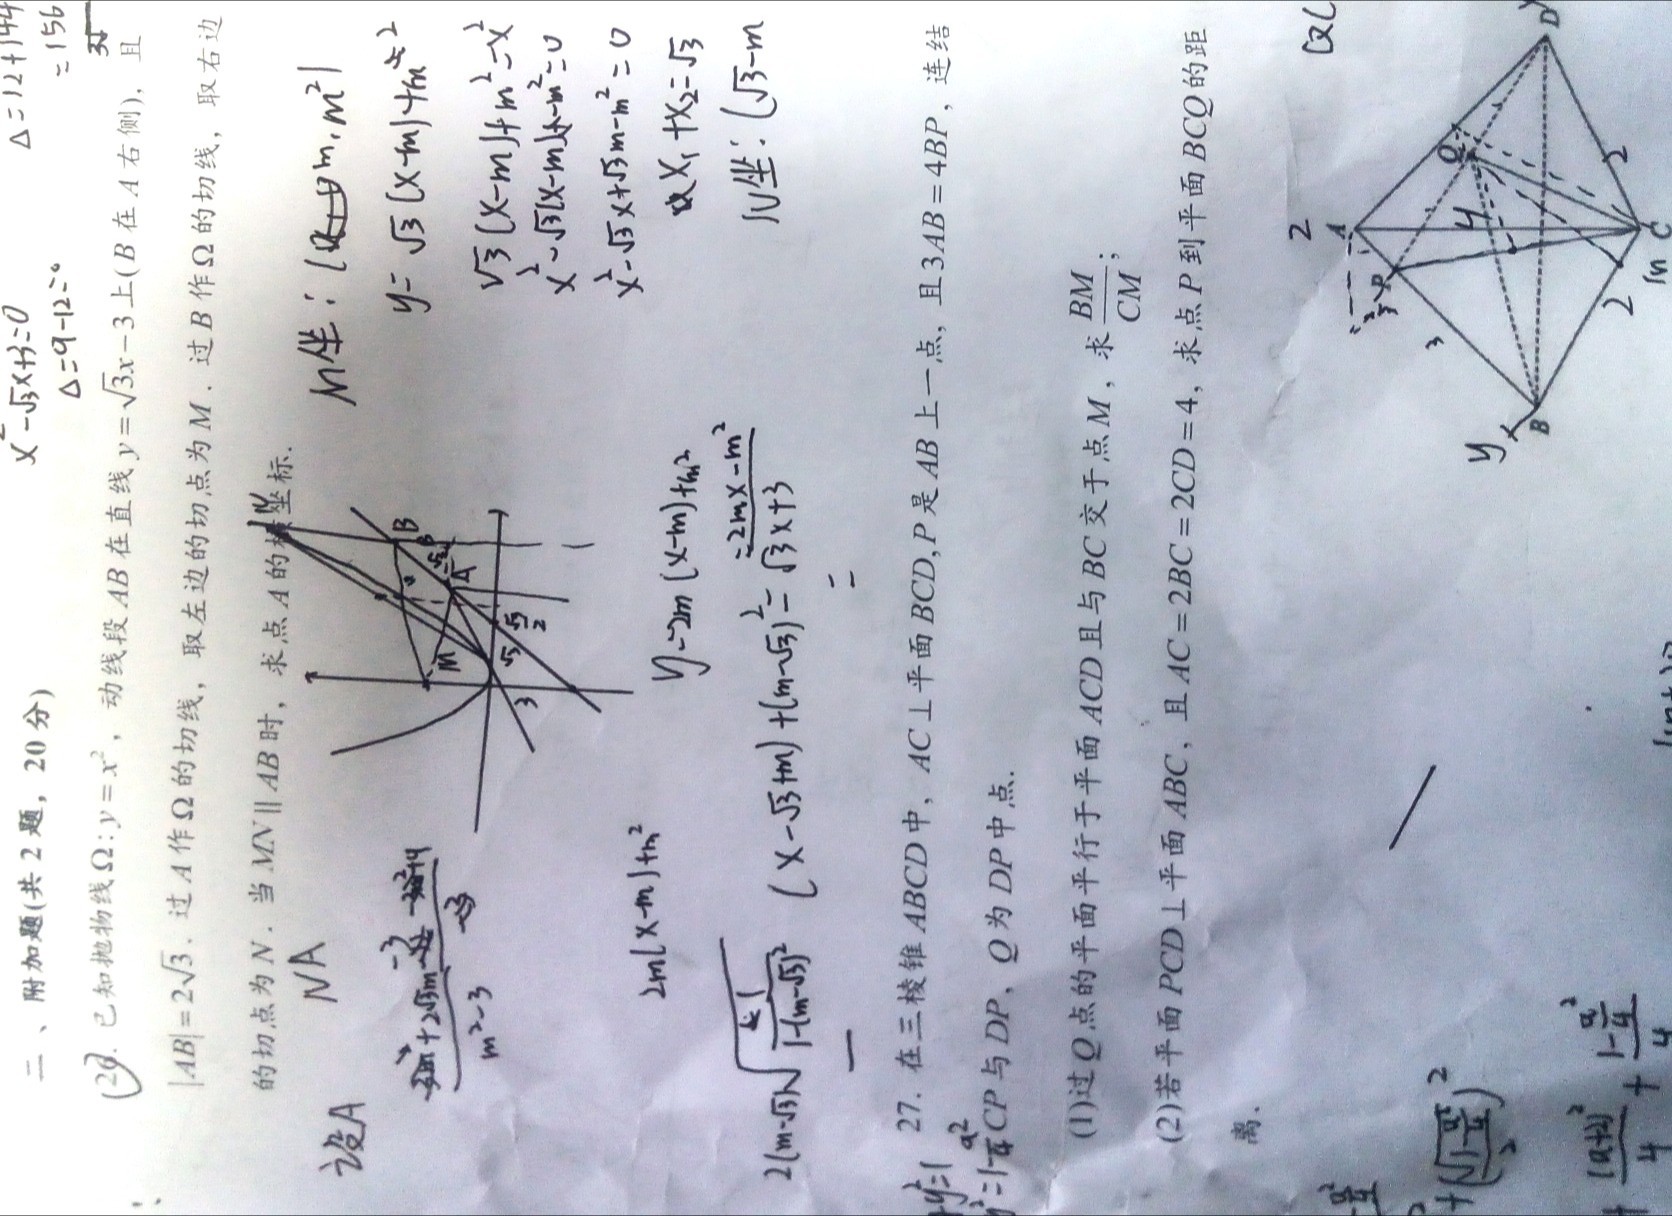 二、附加题(共2题，20分)
26. 已知抛物线Ω:y=x²，动线段AB在直线y=√3x-3上(B在A右侧)，且
|AB|=2√3. 过A作Ω的切线，取左边的切点为M. 过B作Ω的切线，取右边
的切点为N. 当MN∥AB时，求点A的横坐标.
x²-√3x+3=0
Δ=9-12=0
Δ=12+144
=156
设A
NA
m²-3
M坐:(m,m²)
y=√3(x-m)+m²
√3(x-m)+m²=x²
x²-√3(x-m)-m²=0
x²-√3x+√3m-m²=0
x₁+x₂=√3
N坐:(√3-m
M
A
B
N
3
√3
2m(x-m)+m²
y=2m(x-m)+m²
=2mx-m²
(x-√3+m)+(m-√3)²=√3x+3
=
27. 在三棱锥ABCD中，AC⊥平面BCD,P是AB上一点，且3AB=4BP，连结
CP与DP，Q为DP中点.
(1)过Q点的平面平行于平面ACD且与BC交于点M，求BM/CM;
(2)若平面PCD⊥平面ABC，且AC=2BC=2CD=4，求点P到平面BCQ的距
离.
A
P
Q
B
C
D
y
x
2
4
3
2
2